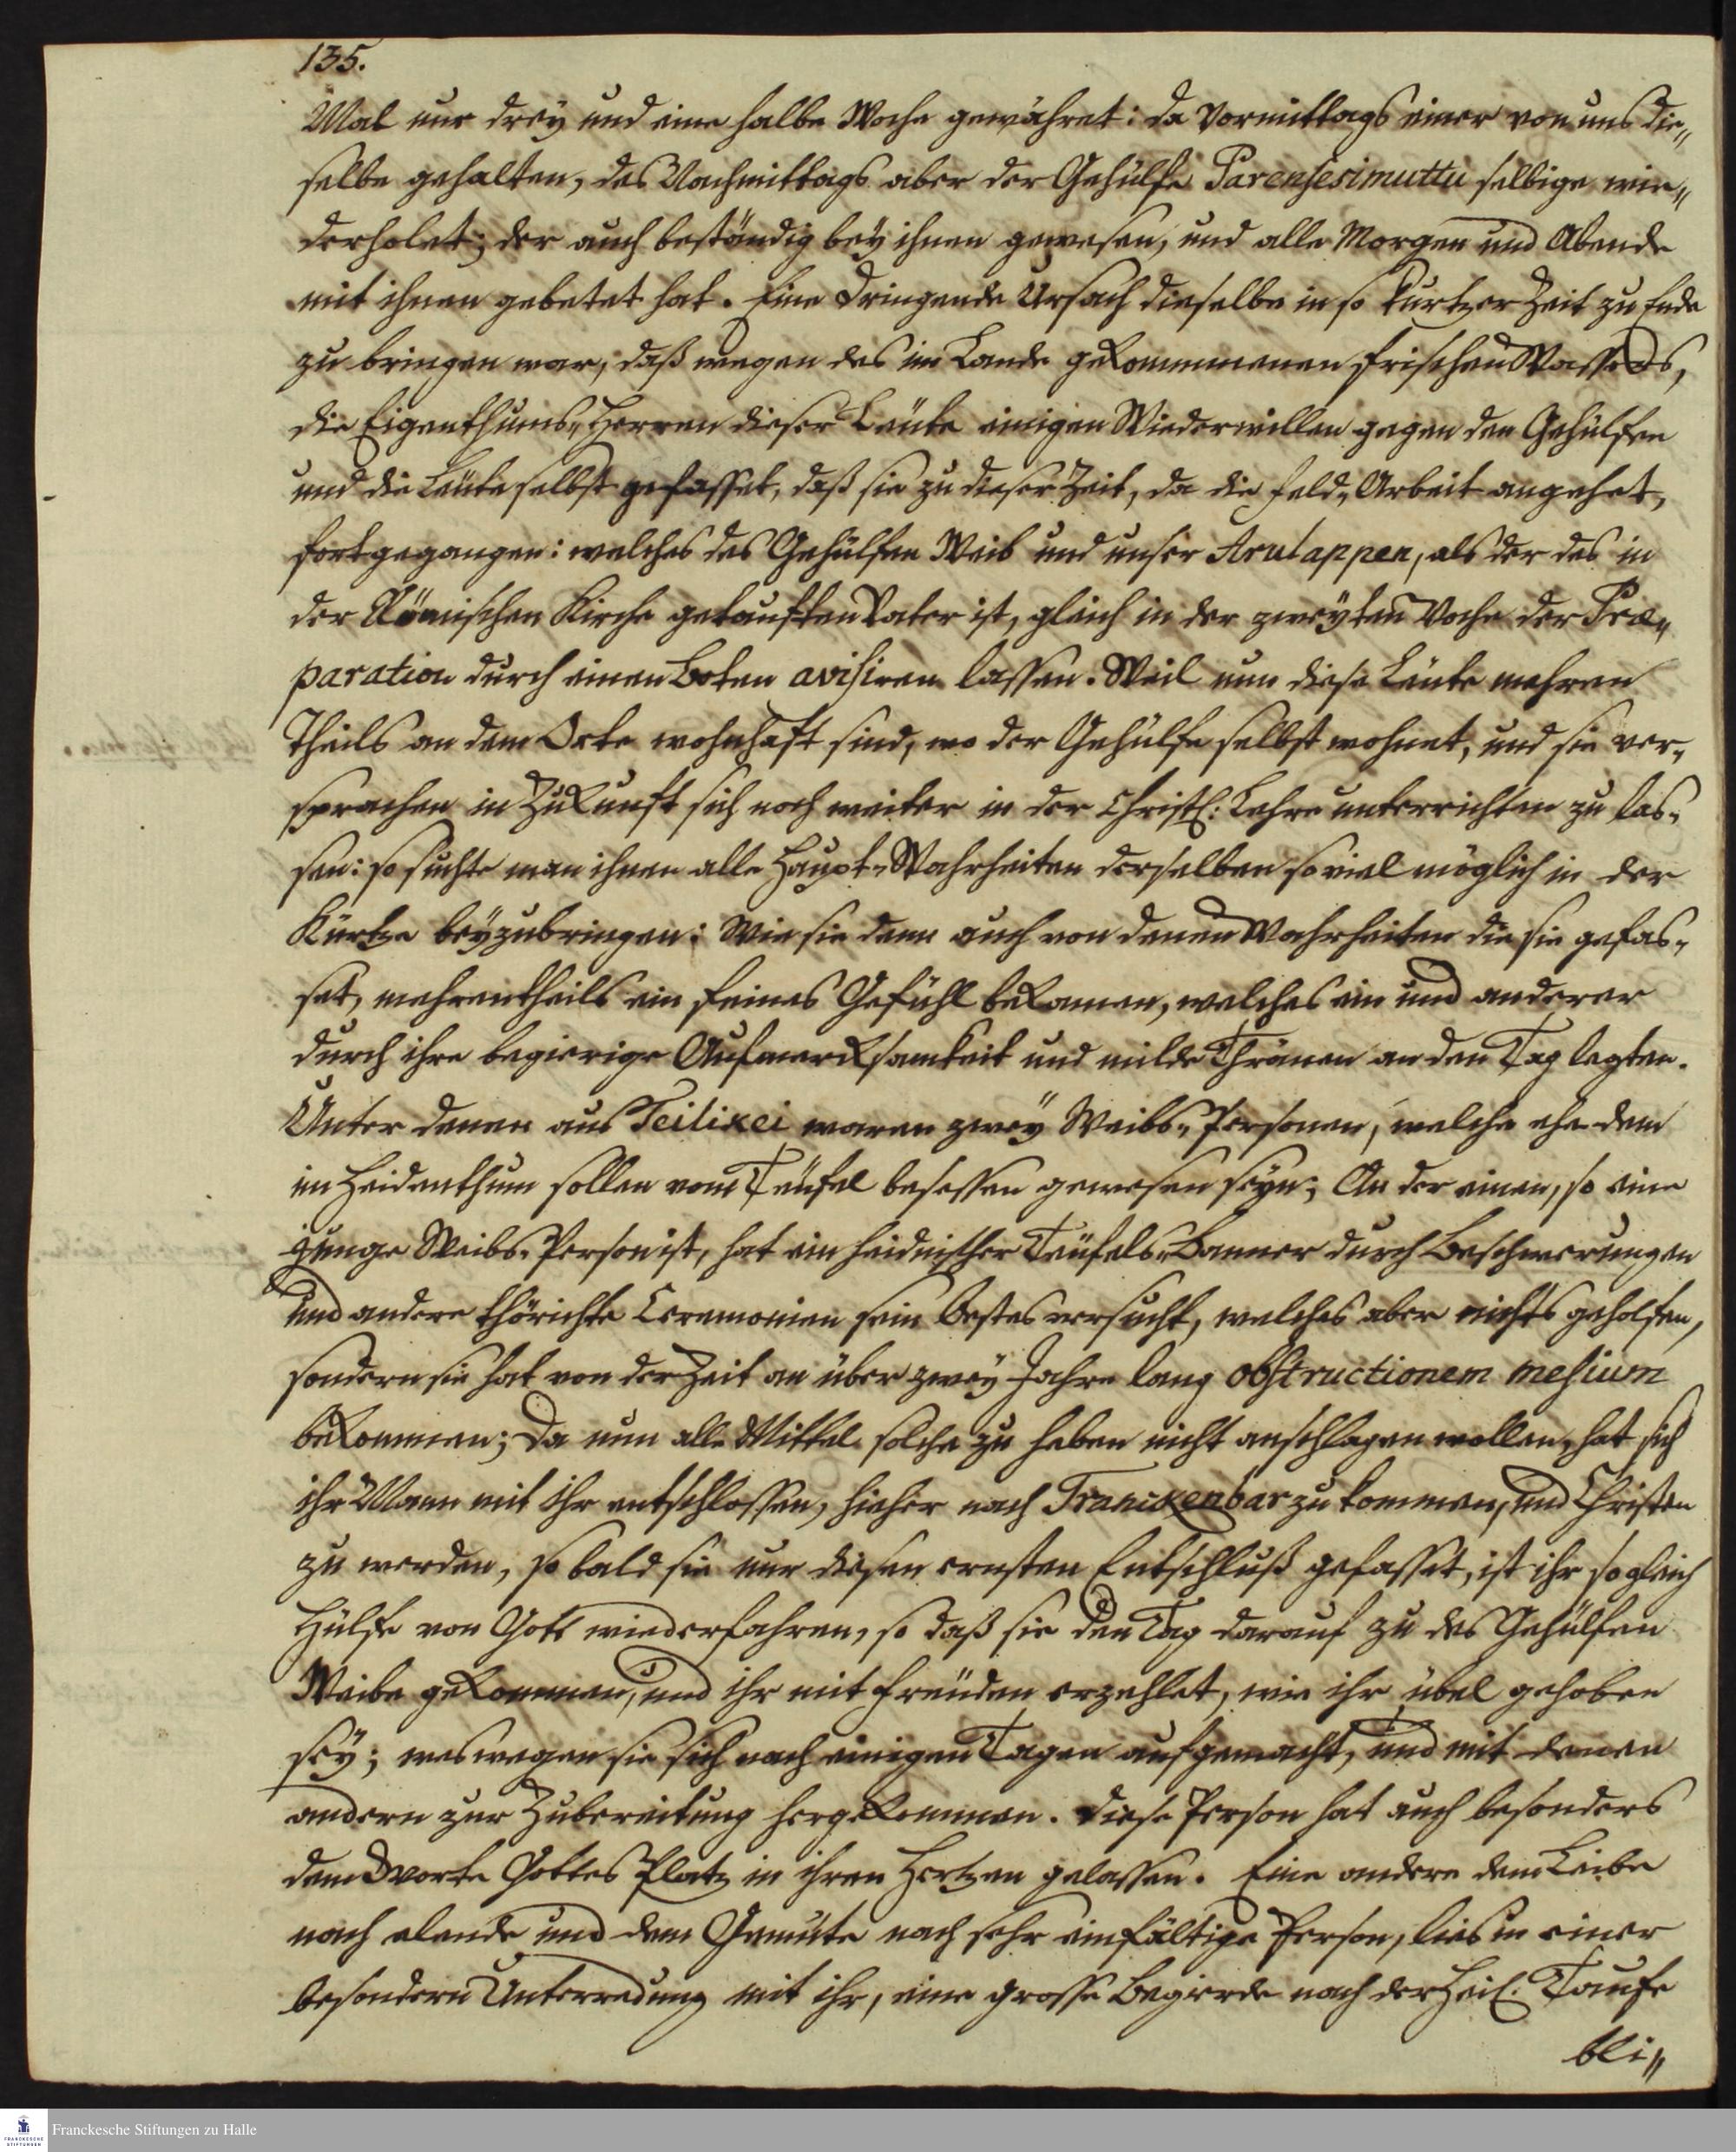 135.
Mal nur drey und eine halbe Woche gewähret: da Vormittags einer von uns die„
selbe gehalten, des Nachmittags aber der Gehülfe Parensesimuttu selbige wie„
derholet; der auch beständig bey ihnen gewesen, und alle Morgen und Abende
mit ihnen gebetet hat. Eine dringende Ursach dieselbe in so kurtzer Zeit zu Ende
zu bringen war, daß wegen des im Lande gekommmenen frischen Wassers,
die Eigenthums„Herren dieser Leüte einigen Wiederwillen gegen den Gehülfen
und die Leüte selbst gefasset, daß sie zu dieser Zeit, da die Feld„Arbeit angehet,
fortgegangen: welches des Gehülfen Weib und unser Arulappen, als der des in
der Römischen Kirche getauften Vater ist, gleich in der zweyten Woche der Præ„
paration durch einen Boten avisiren lassen. Weil nun diese Leüte mehren
Theils an dem Orte wohnhaft sind, wo der Gehülfe selbst wohnet, und sie ver„
sprachen in Zukunft sich noch weiter in der Christl: Lehre unterrichten zu las„
sen: so suchte man ihnen alle Haupt„Wahrheiten derselben soviel möglich in der
Kürtze beyzubringen: Wie sie denn auch von denen Wahrheiten die sie gefas„
set, mehrentheils ein feines Gefühl bekamen, welches ein und anderer
durch ihre begierige Aufmerksamkeit und milde Thränen an den Tag legten.
Unter denen aus Teilixei waren zwey Weibs„Personen, welche ehe dem
im Heidenthum sollen vom Teüfel besessen gewesen seyn; An der einen, so eine
junge Weibs„Person ist, hat ein heidnischer Teüfels„Banner durch Beschwerungen
und andere thörichte Ceremonien sein Bestes versucht, welches aber nichts geholfen,
sondern sie hat von der Zeit an über zwey Jahre lang obstructionem mesium
bekommen; Da nun alle Mittel solche zu heben nicht anschlagen wollen, hat sich
ihr Mann mit ihr entschlossen, hieher nach Tranckenbar zu kommen, und Christen
zu werden, so bald sie nur diesen ernsten Entschluß gefasset, ist ihr sogleich
Hülfe von Gott wiederfahren, so daß sie den Tag darauf zu des Gehülfen
Weibe gekommen, und ihr mit Freüden erzehlet, wie ihr übel gehoben
sey; weswegen sie sich nach einigen Tagen aufgemacht, und mit denen
andern zur Zubereitung hergekommen. Diese Person hat auch besonders
dem Worte Gottes Platz in ihren Hertzen gelassen. Eine andere dem Leibe
nach elende und dem Gemüte nach sehr einfältige Person, lies in einer
besondern Unterredung mit ihr, eine grosse Begierde nach der Heil. Taufe
bli„
Franckesche Stiftungen zu Halle
FRANCKESCHE
STIFTUNGEN